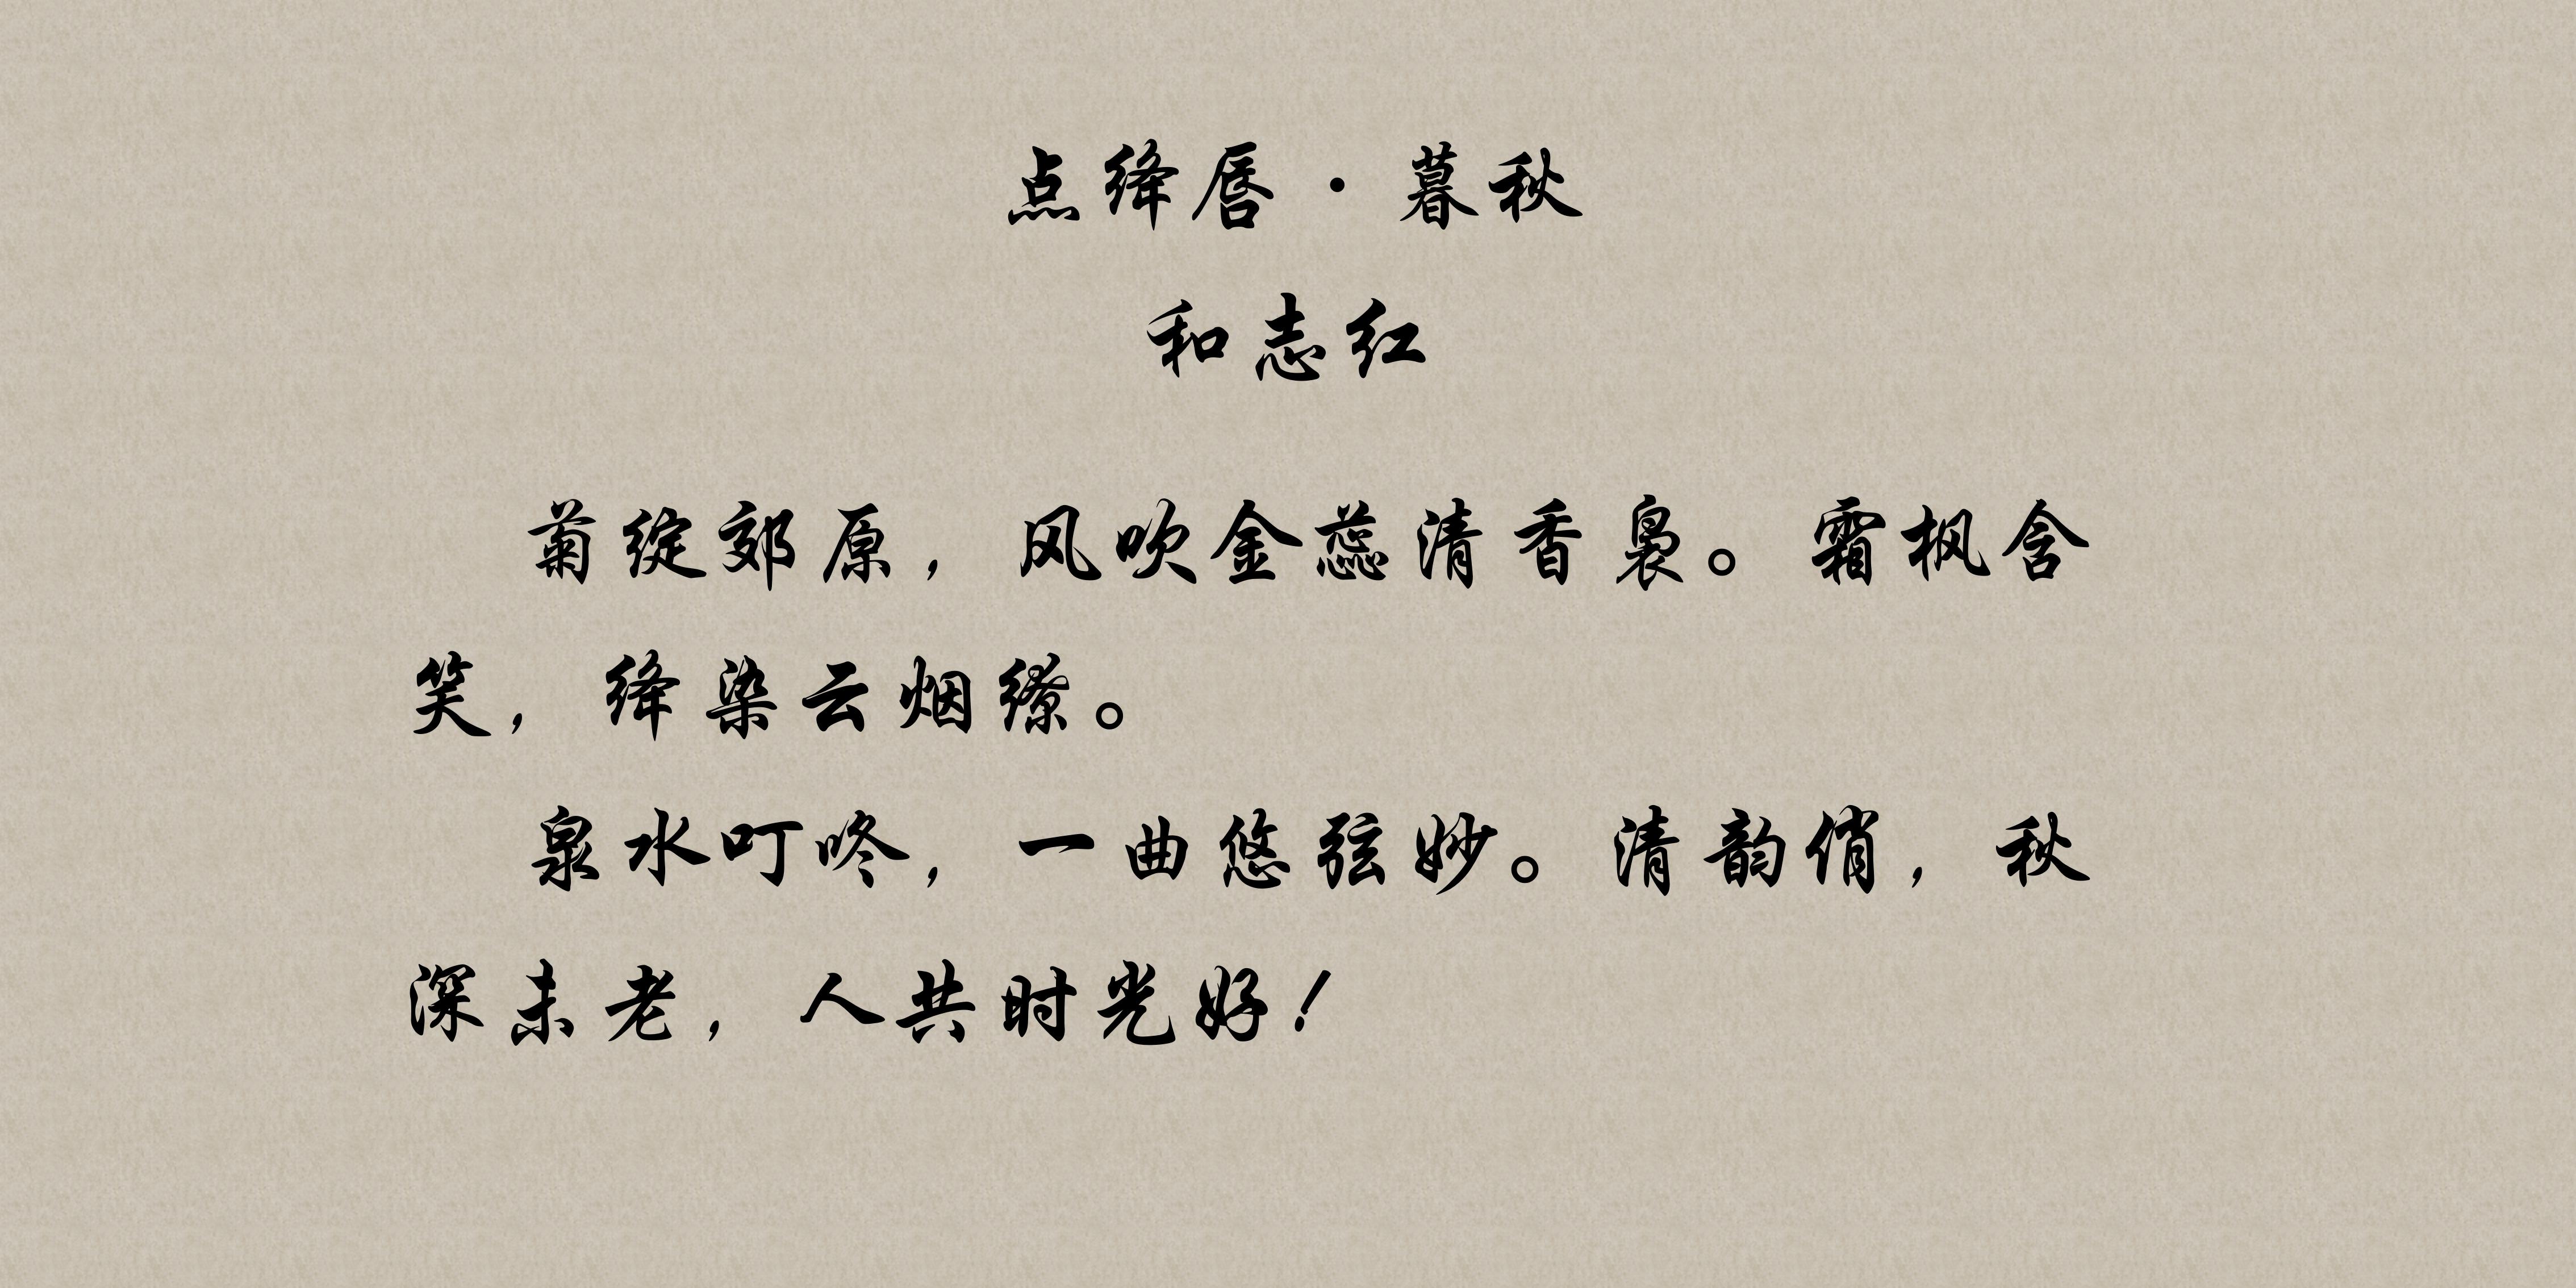 点绛唇·暮秋
和志红
菊绽郊原，风吹金蕊清香袅。霜枫含
笑，绛染云烟缭。
泉水叮咚，一曲悠弦妙。清韵俏，秋
深未老，人共时光好！